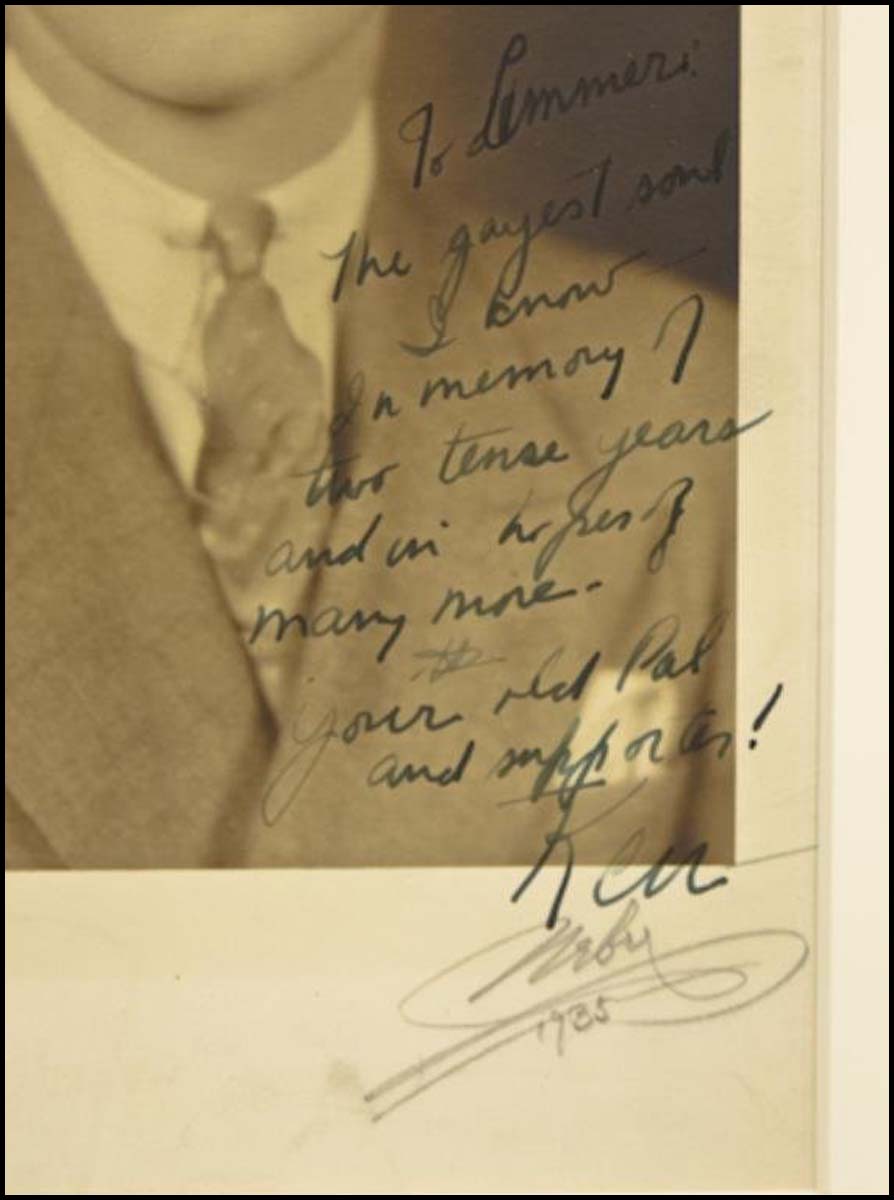 To Lemmer:
The gayest soul
I know
In memory of
two tense years
and in hopes of
many more -
your old Pal
and supporter!
Ken
1935